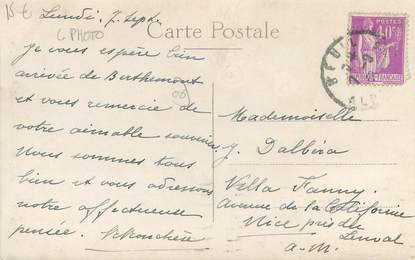 15 €
Lundi, 7. Septe
C PHOTO
Carte Postale
Je vous espère bien
arrivée de Berthemont
et vous remercie de
votre aimable souvenir
Nous sommes tous
bien et vous adressons
notre affectueuse
pensée.
POSTES
40c
Mademoiselle
J. Dalbéra
Villa Fanny.
Avenue de la Californie
Nice près du
Lenval
A-M.